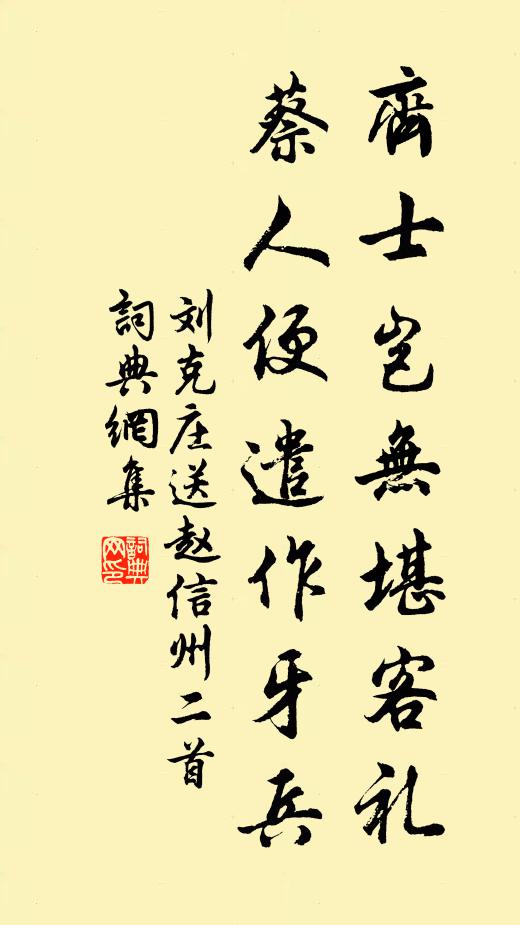 齊士豈無堪客礼
蔡人便遣作牙兵
刘克庄送赵信州二首
詞典網集
詞典網印